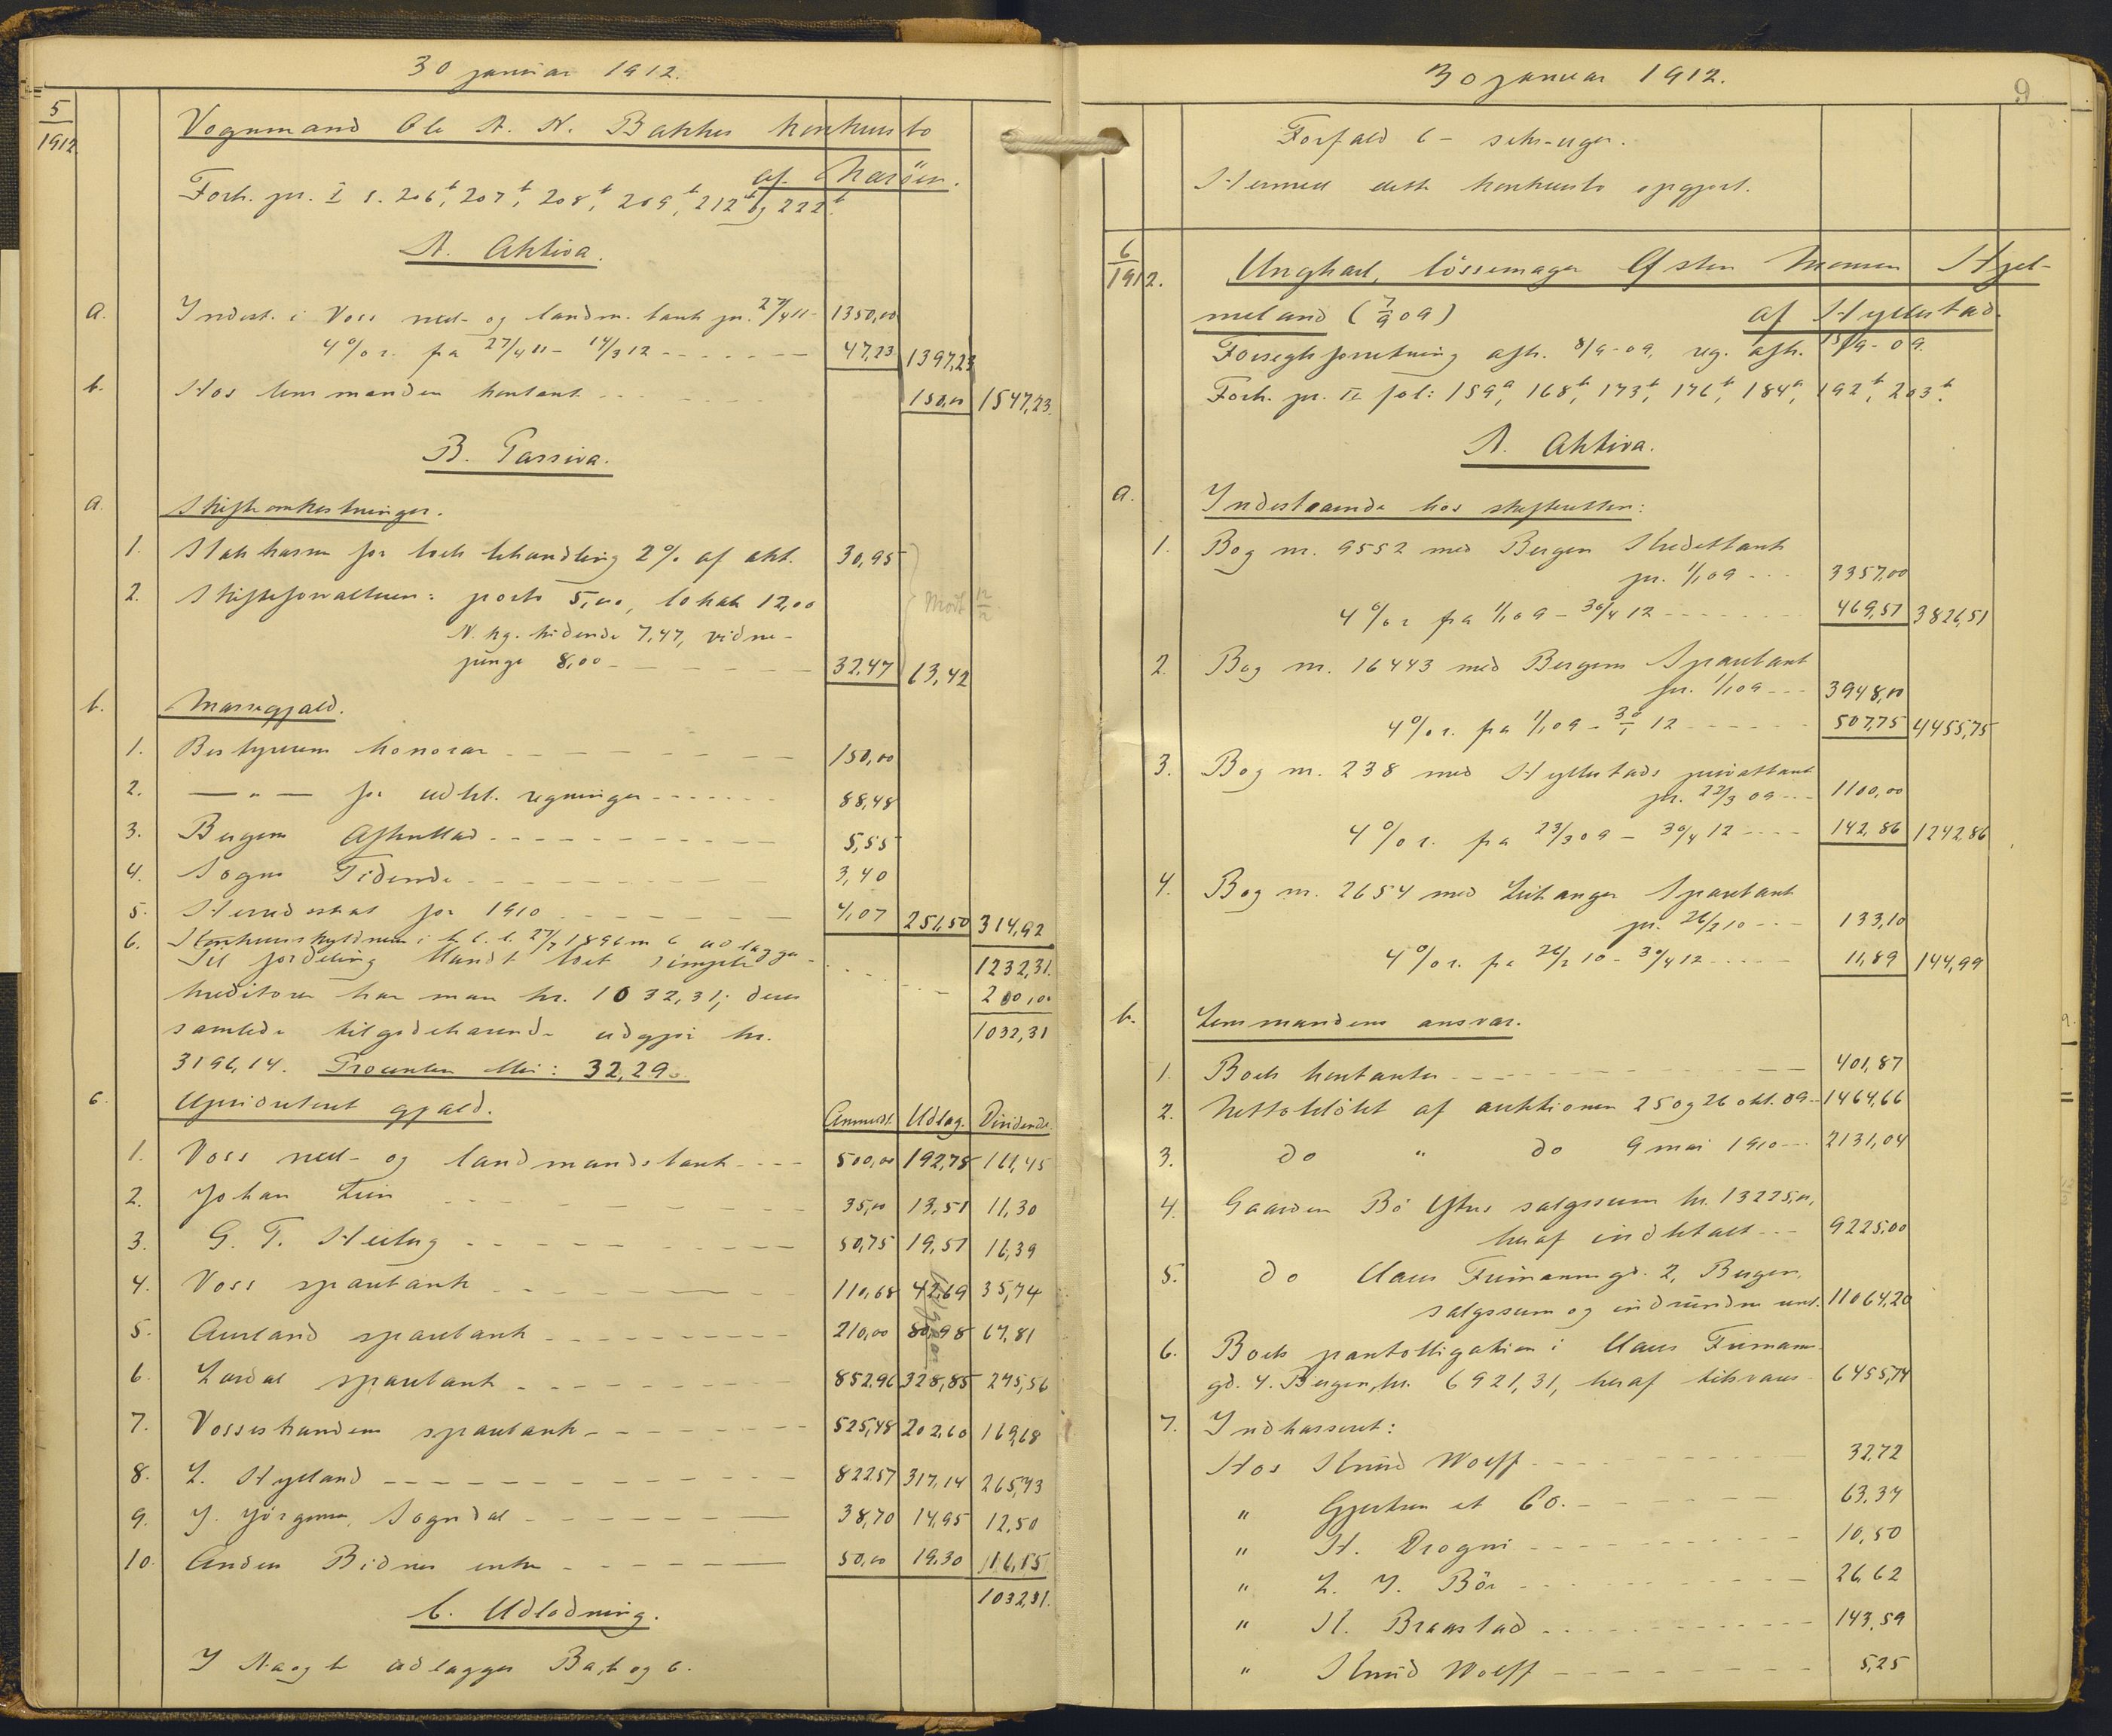 30 januar 1912.
5/1912.
Vognmand Ole A. N. Bakkes konkursbo
af
Forh. pr. I s. 206b, 207b, 208b, 209b, 212b og 222b.
A. Aktiva.
a. Indest. i Voss ned- og landm. bank pr. 27/4 11 - 1350,00
4% r. fra 27/4 11 - 14/3 12 - 47,23 1397,23
b. Hos lensmanden kontant 150,00 1547,23.
B. Passiva.
a. Skifteomkostninger.
1. Statskassen for boets behandling 2% af akt. 30,95
2. Skifteforvalteren: porto 5,00, lokale 12,00
N. kg. tidende 7,47, vidne-
penge 8,00 - 32,47 63,42
b. Massegjæld.
1. Bestyrerens honorar 150,00
2. — " — for udbet. regninger 88,48
3. Bergens Aftenblad 5,55
4. Sogns Tidende 3,40
5. Herredsskat for 1910 4,07 251,50 314,92
6. 27/7 1896
Til fordeling blandt boets simple 1232,31.
kreditorer har man kr. 1032,31; deres 200,00
samlede tilgodehavende udgjør kr. 1032,31
3196,14. Procenten blir: 32,29.
c. Uprioriteret gjæld. Anmeldt. Udlag. Dividende.
1. Voss ned- og landmandsbank 500,00 192,78 161,45
2. Johan Lien 35,00 13,51 11,30
3. G. T. 50,75 19,57 16,39
4. Voss sparebank 110,68 42,69 35,74
5. Aurland sparebank 210,00 80,98 67,81
6. Lærdal sparebank 852,96 328,85 275,56
7. Vossestrandens sparebank 525,48 202,60 169,68
8. L. Hylland 822,57 317,14 265,73
9. J. Jörgensen, Sogndal 38,70 14,95 12,50
10. Anders Bidnes enke 50,00 19,30 16,15
1032,31.
C. Udlodning.
I A a og b udlægges B a, b og c.
30 januar 1912.
9
Forfald 6 - seks - uger.
Hermed dette konkursbo opgjort.
6/1912.
Ungkarl, bössemager Monsen Hjel-
meland (7/9 09) af Hyllestad.
Forseglsforretning afh. 8/9-09, reg. afh. 15/9-09.
Forh. pr. II fol: 159a, 168b, 173b, 176b, 184a, 192b, 203b.
A. Aktiva.
a. Indestaaende hos skifteretten:
1. Bog nr. 9552 med Bergens Kreditbank
pr. 1/1 09 3357,00
4% r. fra 1/1 09 - 30/4 12 469,51 3826,51
2. Bog nr. 16443 med Bergens Sparebank
pr. 1/1 09 3948,00
4% r. fra 1/1 09 - 30/ 12 507,75 4455,75
3. Bog nr. 238 med Hyllestads privatbank
pr. 22/3 09 1100,00
4% r. fra 23/3 09 - 30/4 12 142,86 1242,86
4. Bog nr. 2654 med Leikanger Sparebank
pr. 26/2 10 133,10
4% r. fra 26/2 10 - 30/4 12 11,89 144,99
b. Lensmandens ansvar.
1. Boets kontanter 401,87
2. Nettobeløbet af auktionen 25 og 26 okt. 09 1464,66
3. do " do 9 mai 1910 2131,04
4. Gaarden Bö Ytres salgssum kr. 13225,00,
heraf indbetalt 9225,00
5. do Claus gd. 2, Bergen,
salgssum og 11064,20
6. Boets pantobligation i Claus
gd. 4. Bergen, kr. 6921,31, heraf tilsvares 6455,74
7. Indkasseret:
Hos Knud Wolff 32,72
" Gjertsen et Co. 63,34
" H. Drogni 10,50
" L. J. Bör 26,62
" H. Braastad 143,59
" Knud Wolff 5,25